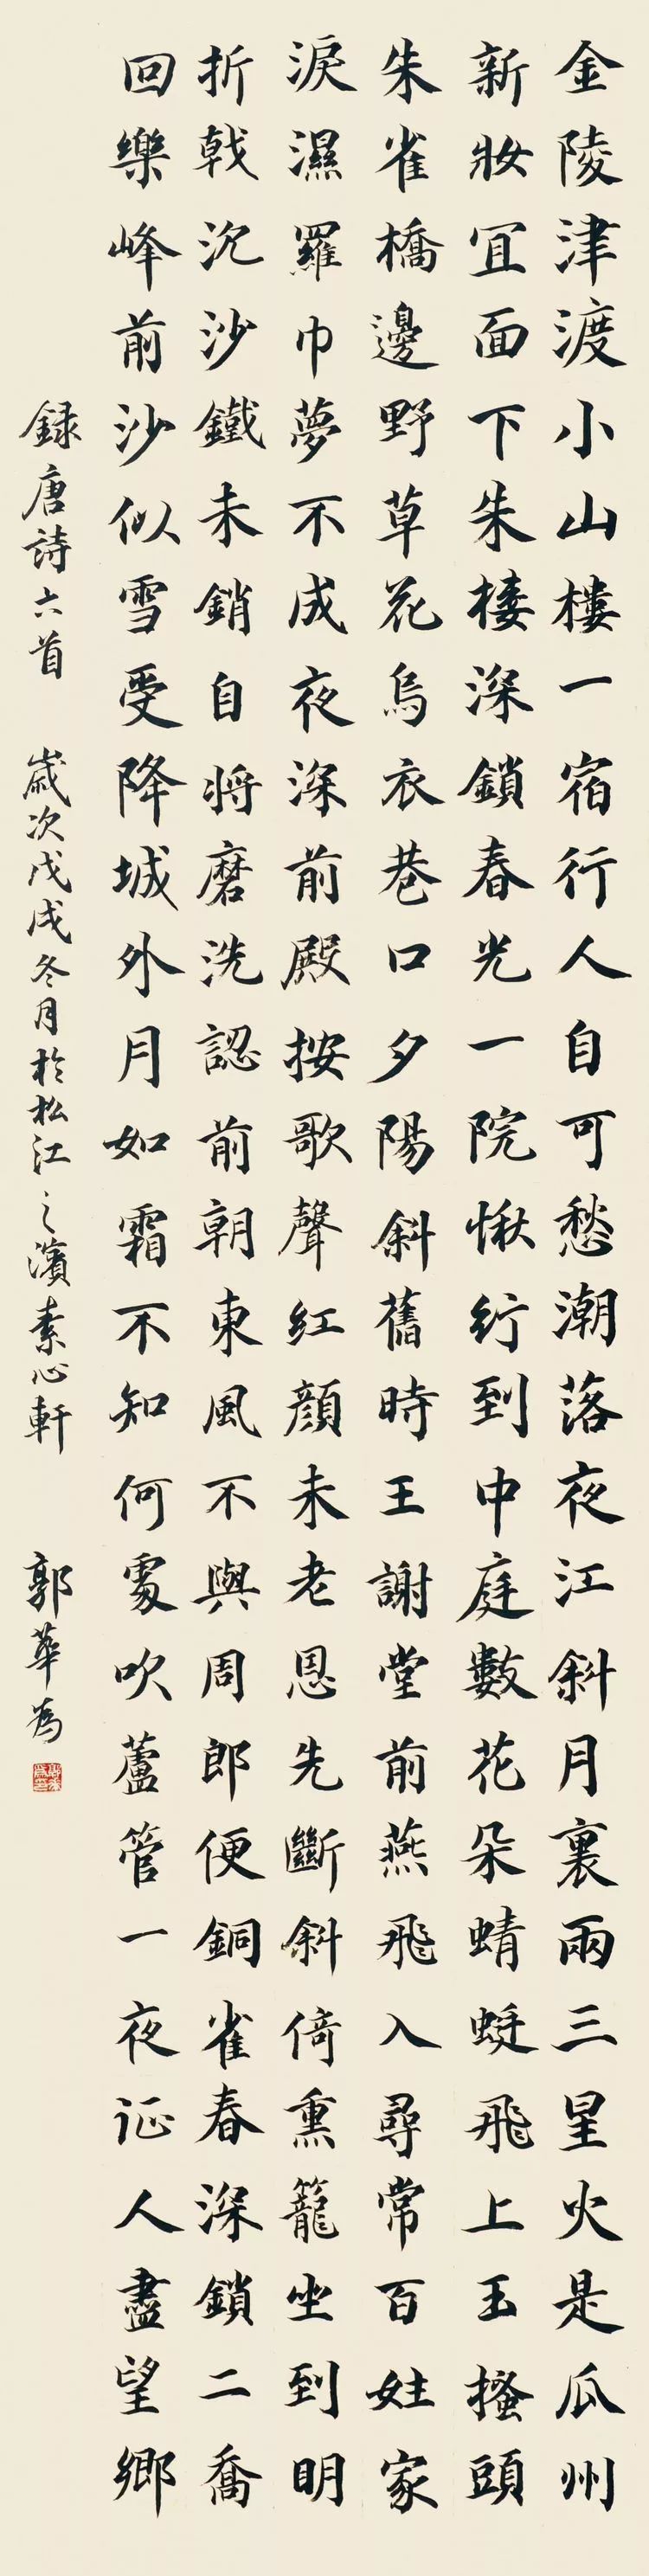 金陵津渡小山樓一宿行人自可愁潮落夜江斜月裏兩三星火是瓜州
新妝宜面下朱樓深鎖春光一院愀行到中庭數花朵蜻蜓飛上玉搔頭
朱雀橋邊野草花烏衣巷口夕陽斜舊時王謝堂前燕飛入尋常百姓家
淚濕羅巾夢不成夜深前殿按歌聲紅顏未老恩先斷斜倚熏籠坐到明
折戟沉沙鐵未銷自將磨洗認前朝東風不與周郎便銅雀春深鎖二喬
回樂峰前沙似雪受降城外月如霜不知何處吹蘆管一夜征人盡望鄉
録唐詩六首 歲次戊戌冬月於松江之濱素心軒 郭華為